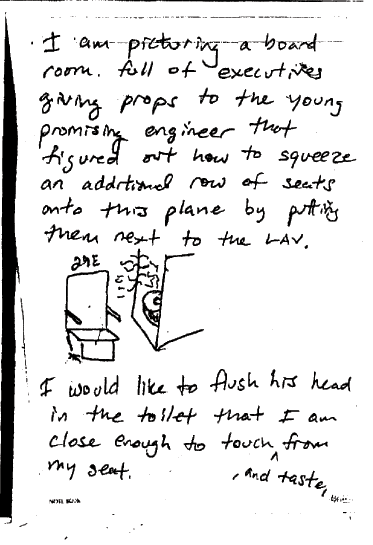 I am picturing a board
room. full of executives
giving props to the young
promising engineer that
figured out how to squeeze
an additional row of seats
onto this plane by putting
them next to the LAV.
29E
I would like to flush his head
in the toilet that I am
close enough to touch ^ from
my seat. , and taste,
NOTE BOOK